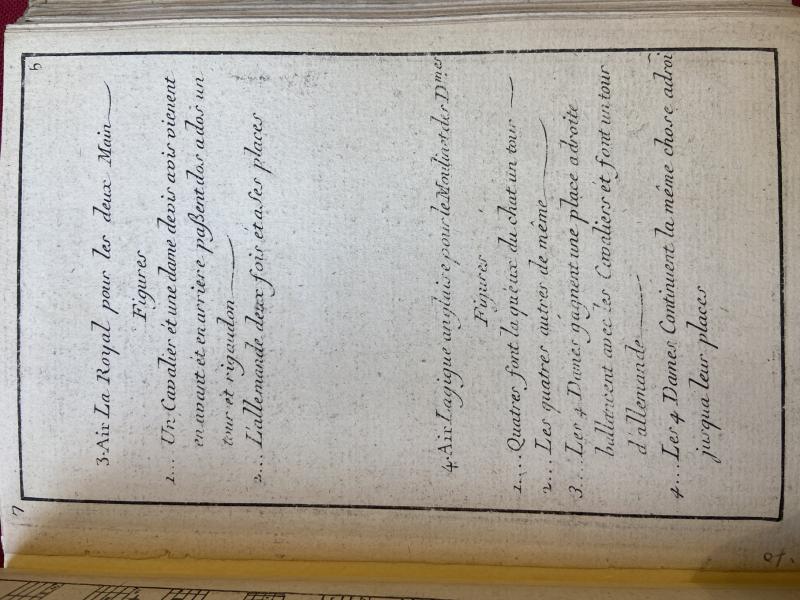 7
5
3. Air La Royal pour les deux Main
Figures
1... Un Cavalier et une dame devis avis vienent
en avant et en arriere passent dos a dos un
tour et rigaudon
2... L'allemande deux fois et a ses places
4. Air Lagigue anglaise pour le Moulinet des Dmes
Figures
1... Quatres font la queux du chat un tour
2... Les quatres autres de même
3... Les 4 Dames gagnent une place adroite
ballancent avec les Cavaliers et font un tour
d'allemande
4... Les 4 Dames Continuent la même chose adroi
jusqua leur places